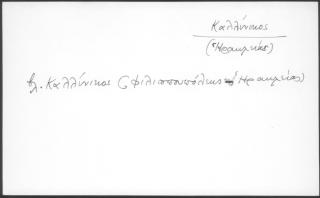 Καλλίνικος
(Ἡρακλείας)
βλ. Καλλίνικος (Φιλιππουπόλεως Ἡρακλείας)